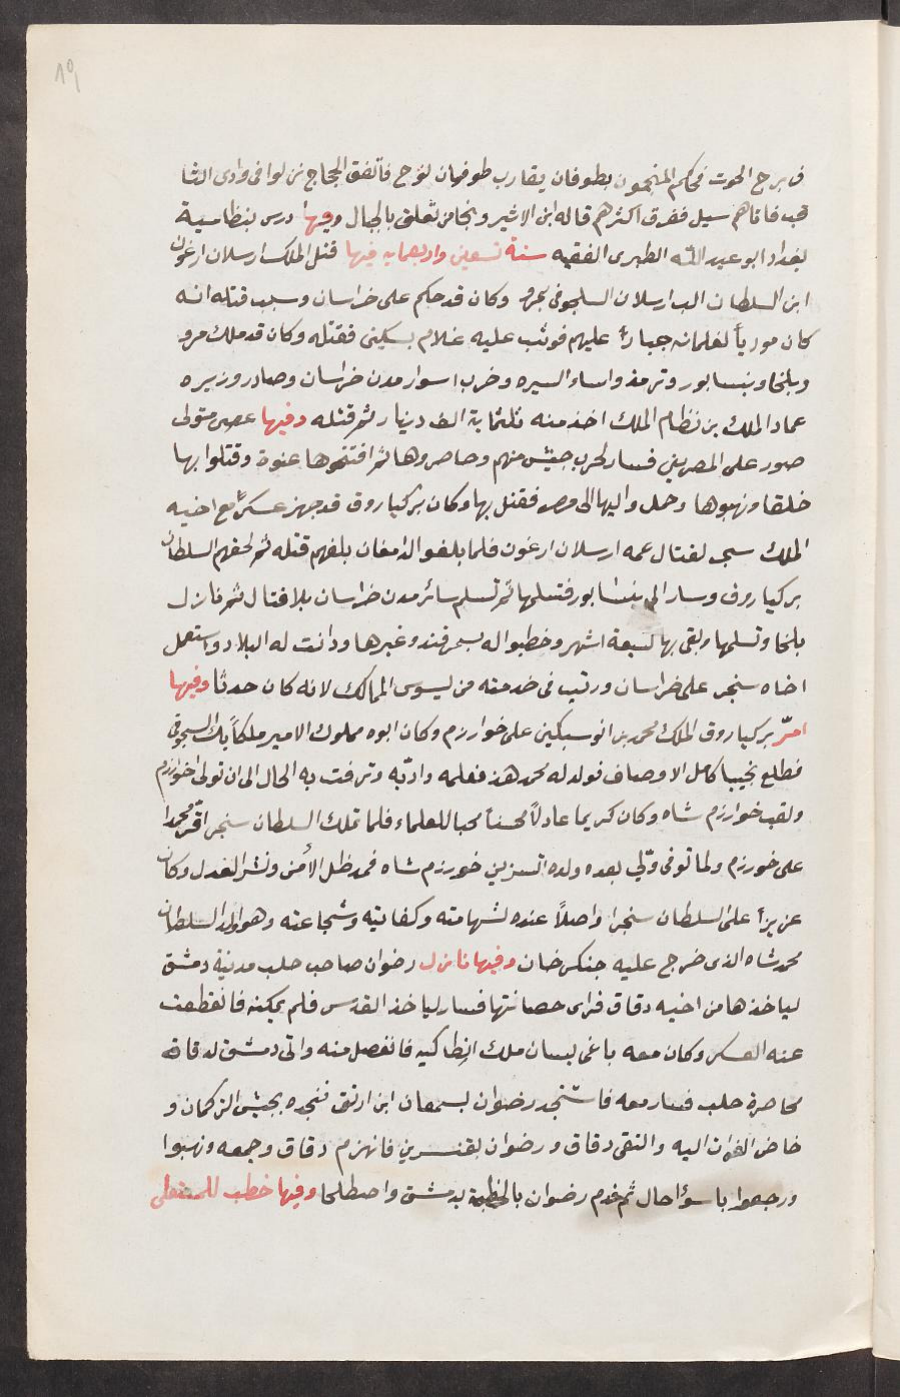 ١٥١
فى برج الحوت فحكم المنجمون بطوفان يقارب طوفان نوح فاتفق الحجاج نزلوا فى وادى الثنا
قب فاتاهم سيل فغرق اكثرهم قاله ابن الاثير ونجا من تعلق بالجبال وفيها درس بنظامية
بغداد ابو عبد الله الطبرى الفقيه سنة تسعين واربعمايه فيها قتل الملك ارسلان ارغون
ابن السلطان الب ارسلان السلجوقى بمرو وكان قد حكم على خراسان وسبب قتله انه
كان موذياً لغلمانه جباراً عليهم فوثب عليه غلام بسكين فقتله وكان قد ملك مرو
وبلخا ونيسابور وترمذ واساء السيره وخرب اسوار مدن خراسان وصادر وزيره
عماد الملك بن نظام الملك اخذ منه ثلثماية الف دينار ثم قتله وفيها عصى متولى
صور على المصريين فسار لحربه جيش منهم وحاصروها ثم افتتحوها عنوة وقتلوا بها
خلقا ونهبوها وحمل واليها الى مصر فقتل بها وكان بركياروق قد جهز عسكراً مع اخيه
الملك سنجر لقتال عمه ارسلان ارغون فلما بلغوا الدامغان بلغهم قتله ثم لحقهم السلطان
بركياروق وسار الى نيسابور فتسلمها ثم تسلم سائر مدن خراسان بلا قتال ثم نازل
بلخا وتسلمها وبقى بها سبعة اشهر وخطبوا له بسمرقند وغيرها ودانت له البلاد واستعمل
اخاه سنجر على خراسان ورتب فى خدمته من يسوس الممالك لانه كان حدثا وفيها
امّر بركياروق الملك محمد بن انوستكين على خوارزم وكان ابوه مملوك الامير ملكابك السلجوقى
فطلع نجيبا كامل الاوصاف فولد له محمد هذا فعلمه وادّبه وترقت به الحال الى ان تولى خوارزم
ولقب خوارزم شاه وكان كريما عادلاً محسناً محبا للعلماء فلما تملك السلطان سنجر اقرّ محمدا
على خورزم ولما توفى ولّى بعده ولده اتسز بن خورزم شاه فمد ظل الأمن ونشر العدل وكان
عزيزاً على السلطان سنجر واصلاً عنده لشهامته وكفايته وشجاعته وهو والد السلطان
محمد شاه الذى خرج عليه جنكس خان وفيها نازل رضوان صاحب حلب مدينة دمشق
لياخذها من اخيه دقاق فراى حصانتها فسار لياخذ القدس فلم يمكنه فانقطعت
عنه العسكر وكان معه باغى بسان ملك انطاكيه فانفصل منه واتى دمشق لدقاق
محاصرة حلب فسار معه فاستنجد رضوان بسمعان ابن ارتق فنجده بجيش التركمان و
خاض الفرات اليه والتقى دقاق ورضوان بقنسرين فانهزم دقاق وجمعه ونهبوا
ورجعوا باسوأ حال ثم قدم رضوان بالخطبة بدمشق واصطلحا وفيها خطب للمستعلى